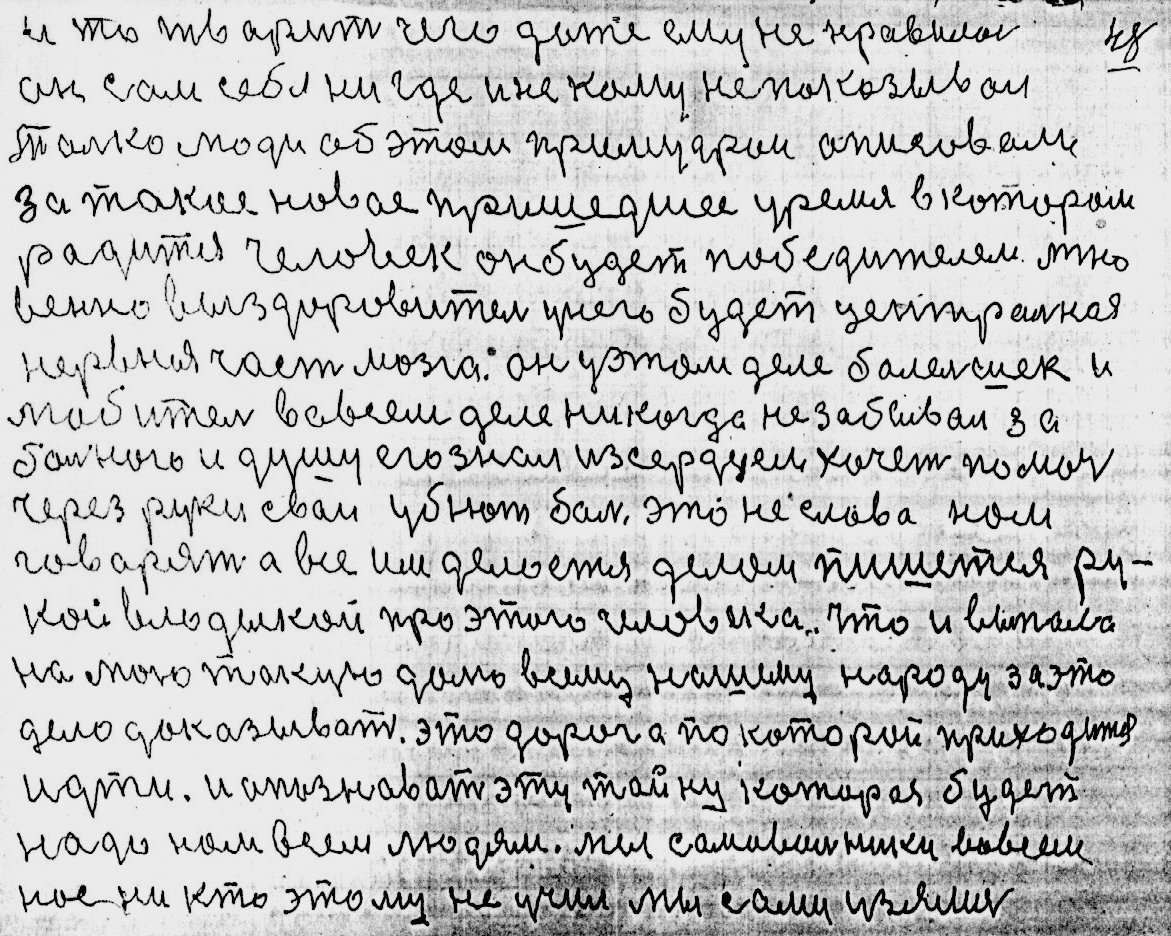 и то тварит чего даже ему не нравилос 48
он сам себя нигде и не кому не показывал
Толко люди об этом примудрои описовали
за такое новое пришедшее уремя в котором
радится человек он будет победителем. мгно
венно выздоровител унего будет централная
нервная част мозга. он уэтом деле болелшек и
любител вовсем деле никогда не забывал за
болного и душу его знал изсердцем хочет помоч
через руки сваи убют бол. это не слова нам
говарят а все им делоется делом пишется ру-
кой владыкой про этого человика.. Что и выпала
на мою такую долю всему нашему народу за это
дело доказыват. это дорога по которой приходится
идти. и опознават эту тайну которая будет
надо нам всем людям. мы самаволники вовсем
нас ни кто этому не учил мы сами узялис